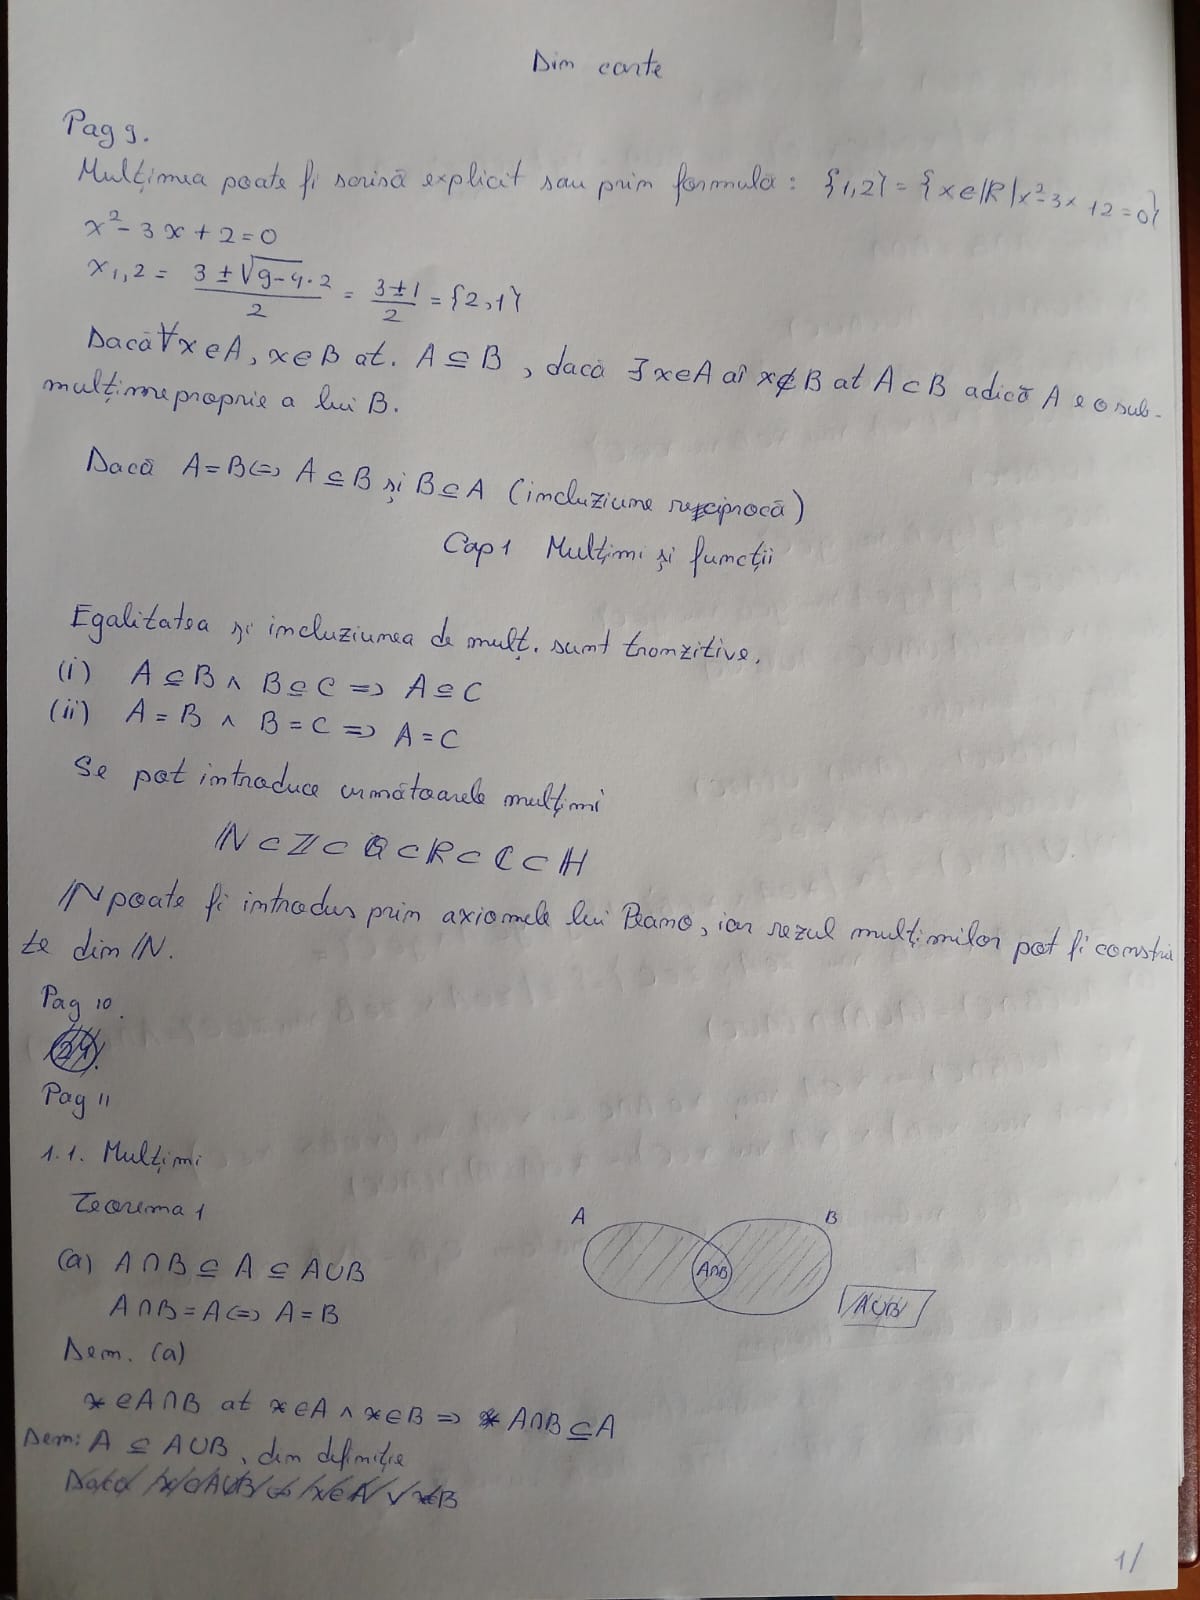 Din carte
Pag 9.
Mulțimea poate fi scrisă explicit sau prin formula: {1,2} = {x∈ℝ|x²-3x+2=0}
x²-3x+2=0
x1,2 = (3±√9-4·2)/2 = (3±1)/2 = {2,1}
Dacă ∀x∈A, x∈B at. A⊆B, dacă ∃x∈A aî x∉B at A⊂B adică A e o sub-
mulțime proprie a lui B.
Dacă A=B⇔ A⊆B și B⊆A (incluziune reciprocă)
Cap 1 Mulțimi și funcții
Egalitatea și incluziunea de mulț. sunt tranzitive.
(i) A⊆B ∧ B⊆C ⇒ A⊆C
(ii) A=B ∧ B=C ⇒ A=C
Se pot introduce următoarele mulțimi
ℕ⊂ℤ⊂ℚ⊂ℝ⊂ℂ⊂ℍ
ℕ poate fi introdus prin axiomele lui Peano, iar rezul mulțimilor pot fi constru
te din ℕ.
Pag 10.
24.
Pag 11
1.1. Mulțimi
Teorema 1
A B
(a) A∩B⊆A⊆A∪B
A∩B
A∪B
A∩B=A⇔A=B
Dem. (a)
x∈A∩B at x∈A ∧ x∈B ⇒ A∩B⊆A
Dem: A⊆A∪B, din definiție
Dacă x∈A∪B ⇔ x∈A ∨ x∈B
1/